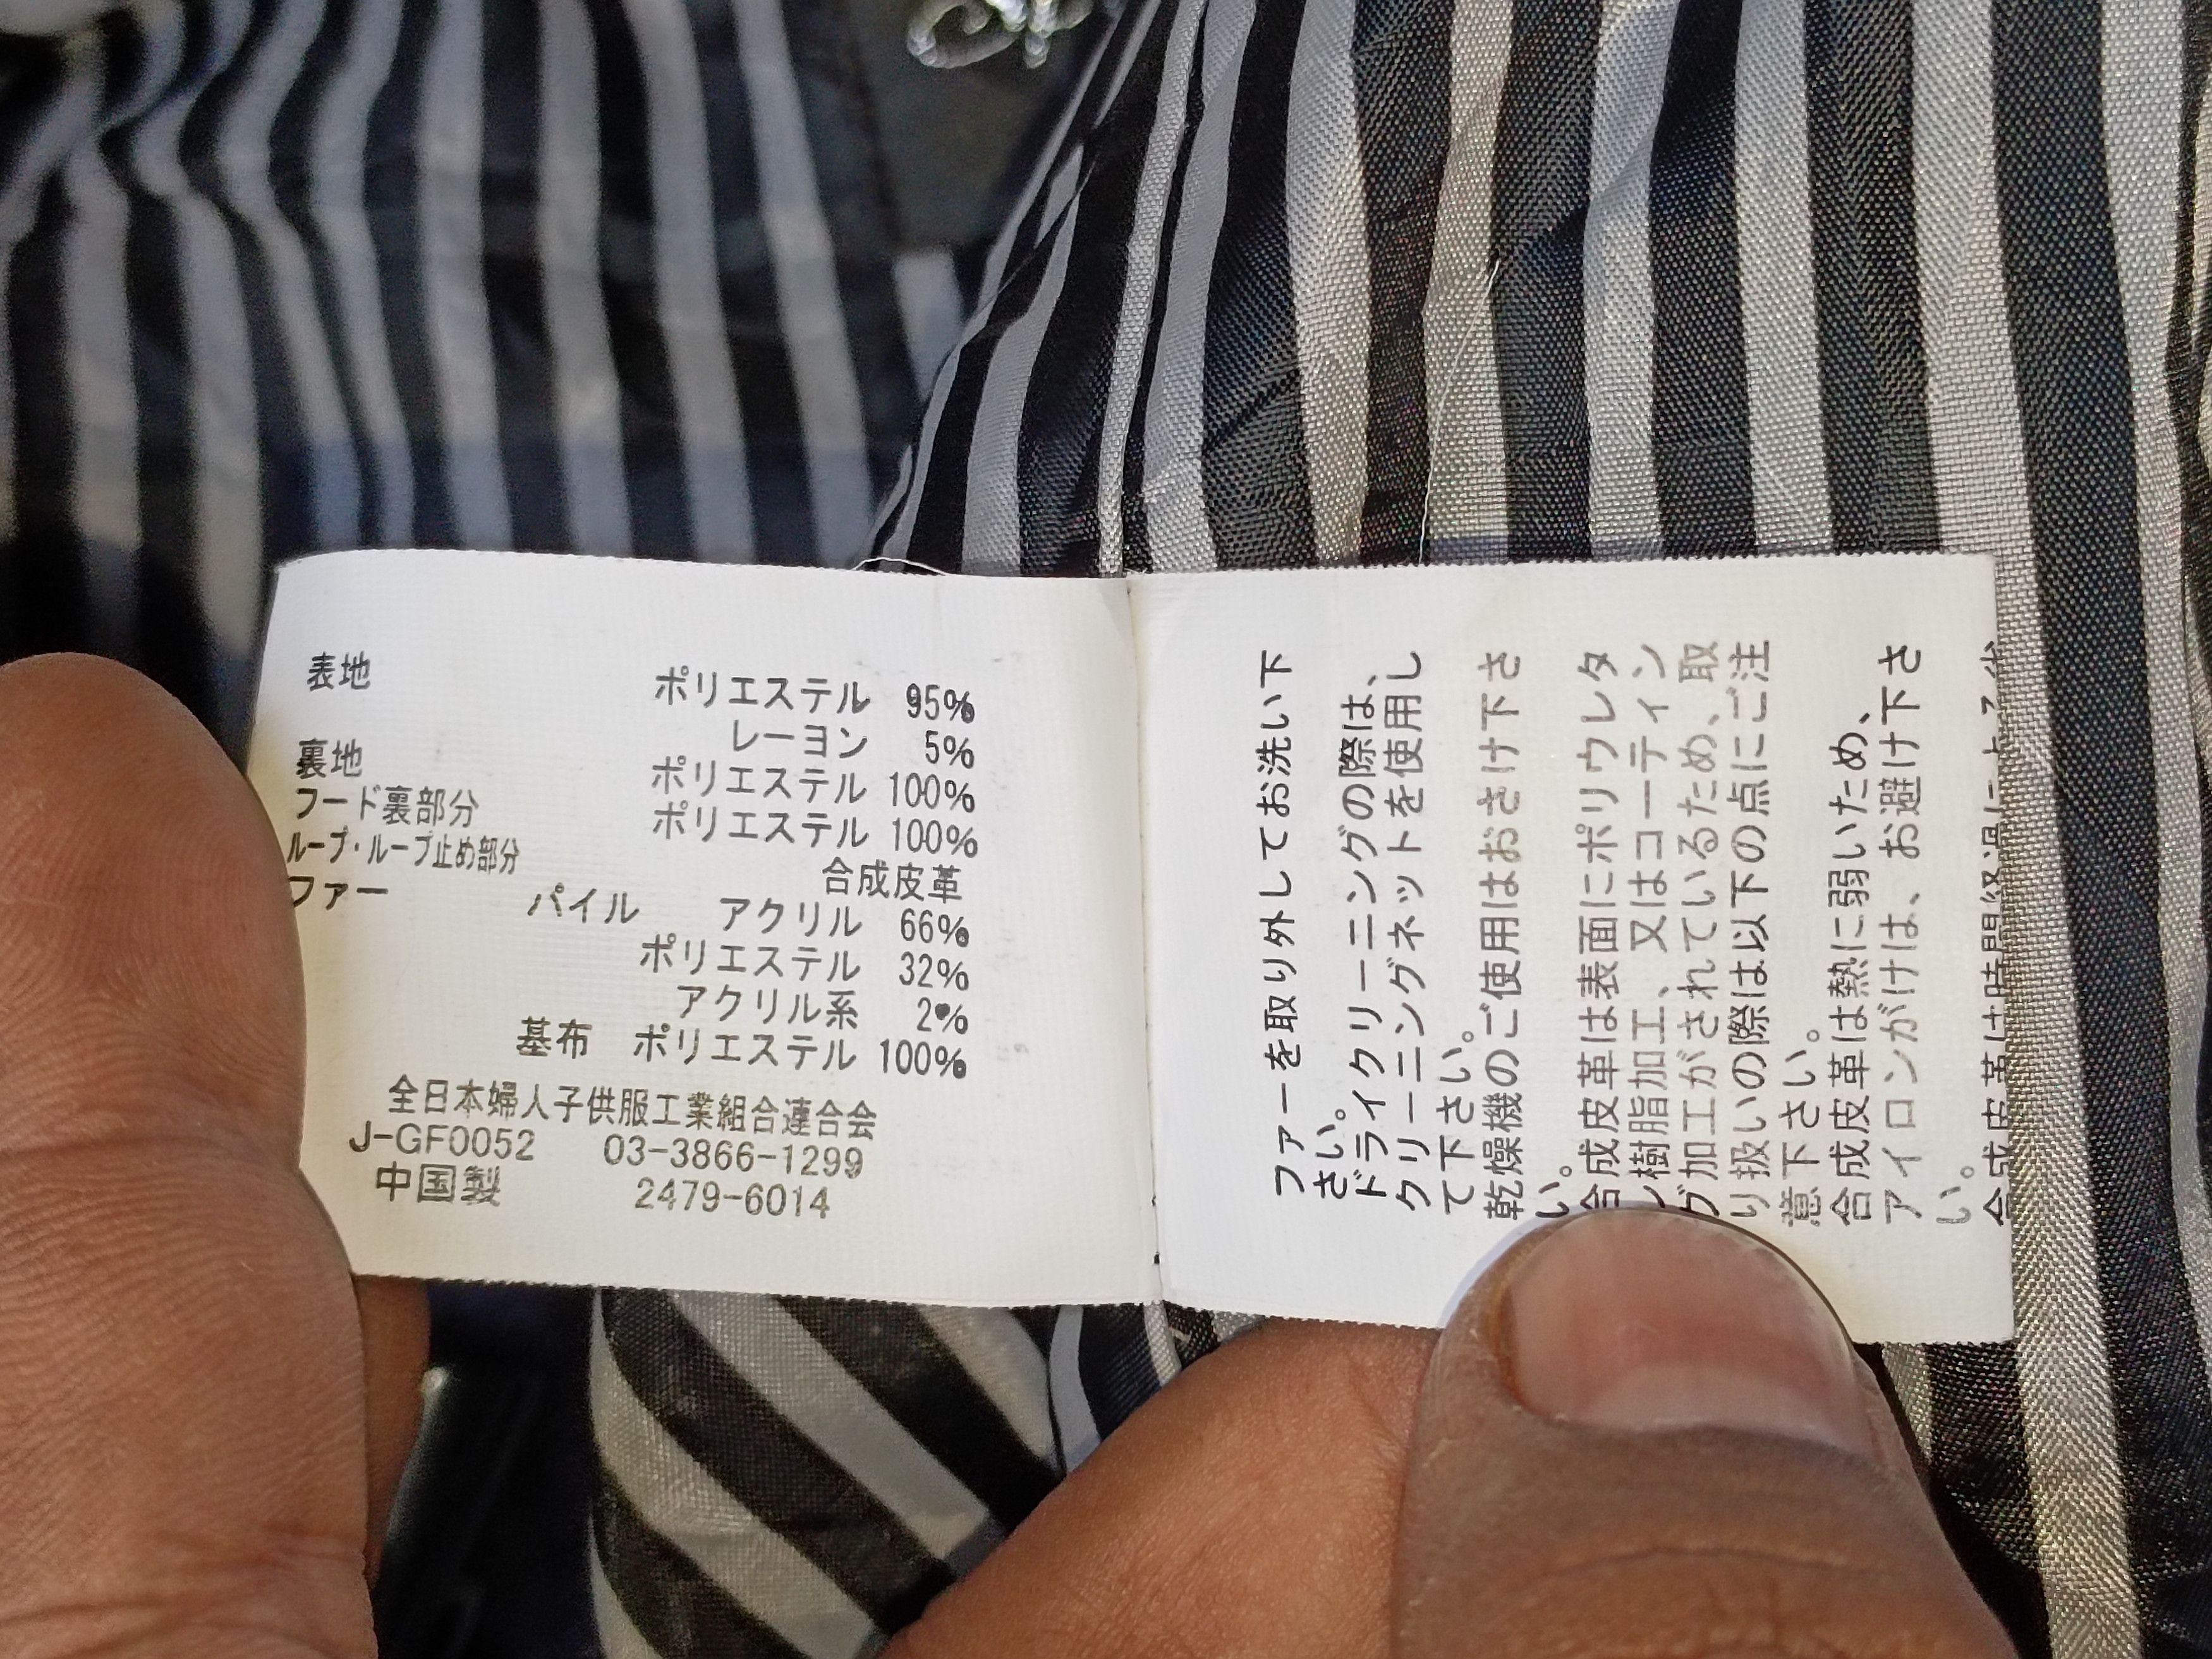 表地 ポリエステル 95%
レーヨン 5%
裏地 ポリエステル 100%
フード裏部分 ポリエステル 100%
ループ・ループ止め部分 合成皮革
ファー パイル アクリル 66%
ポリエステル 32%
アクリル系 2%
基布 ポリエステル 100%
全日本婦人子供服工業組合連合会
J-GF0052 03-3866-1299
中国製 2479-6014
ファーを取り外してお洗い下
さい。
ドライクリーニングの際は、
クリーニングネットを使用し
て下さい。
乾燥機のご使用はおさけ下さ
い。
合成皮革は表面にポリウレタ
ン樹脂加工、又はコーティン
グ加工がされているため、取
り扱いの際は以下の点にご注
意下さい。
合成皮革は熱に弱いため、
アイロンがけは、お避け下さ
い。
合成皮革は時間経過による